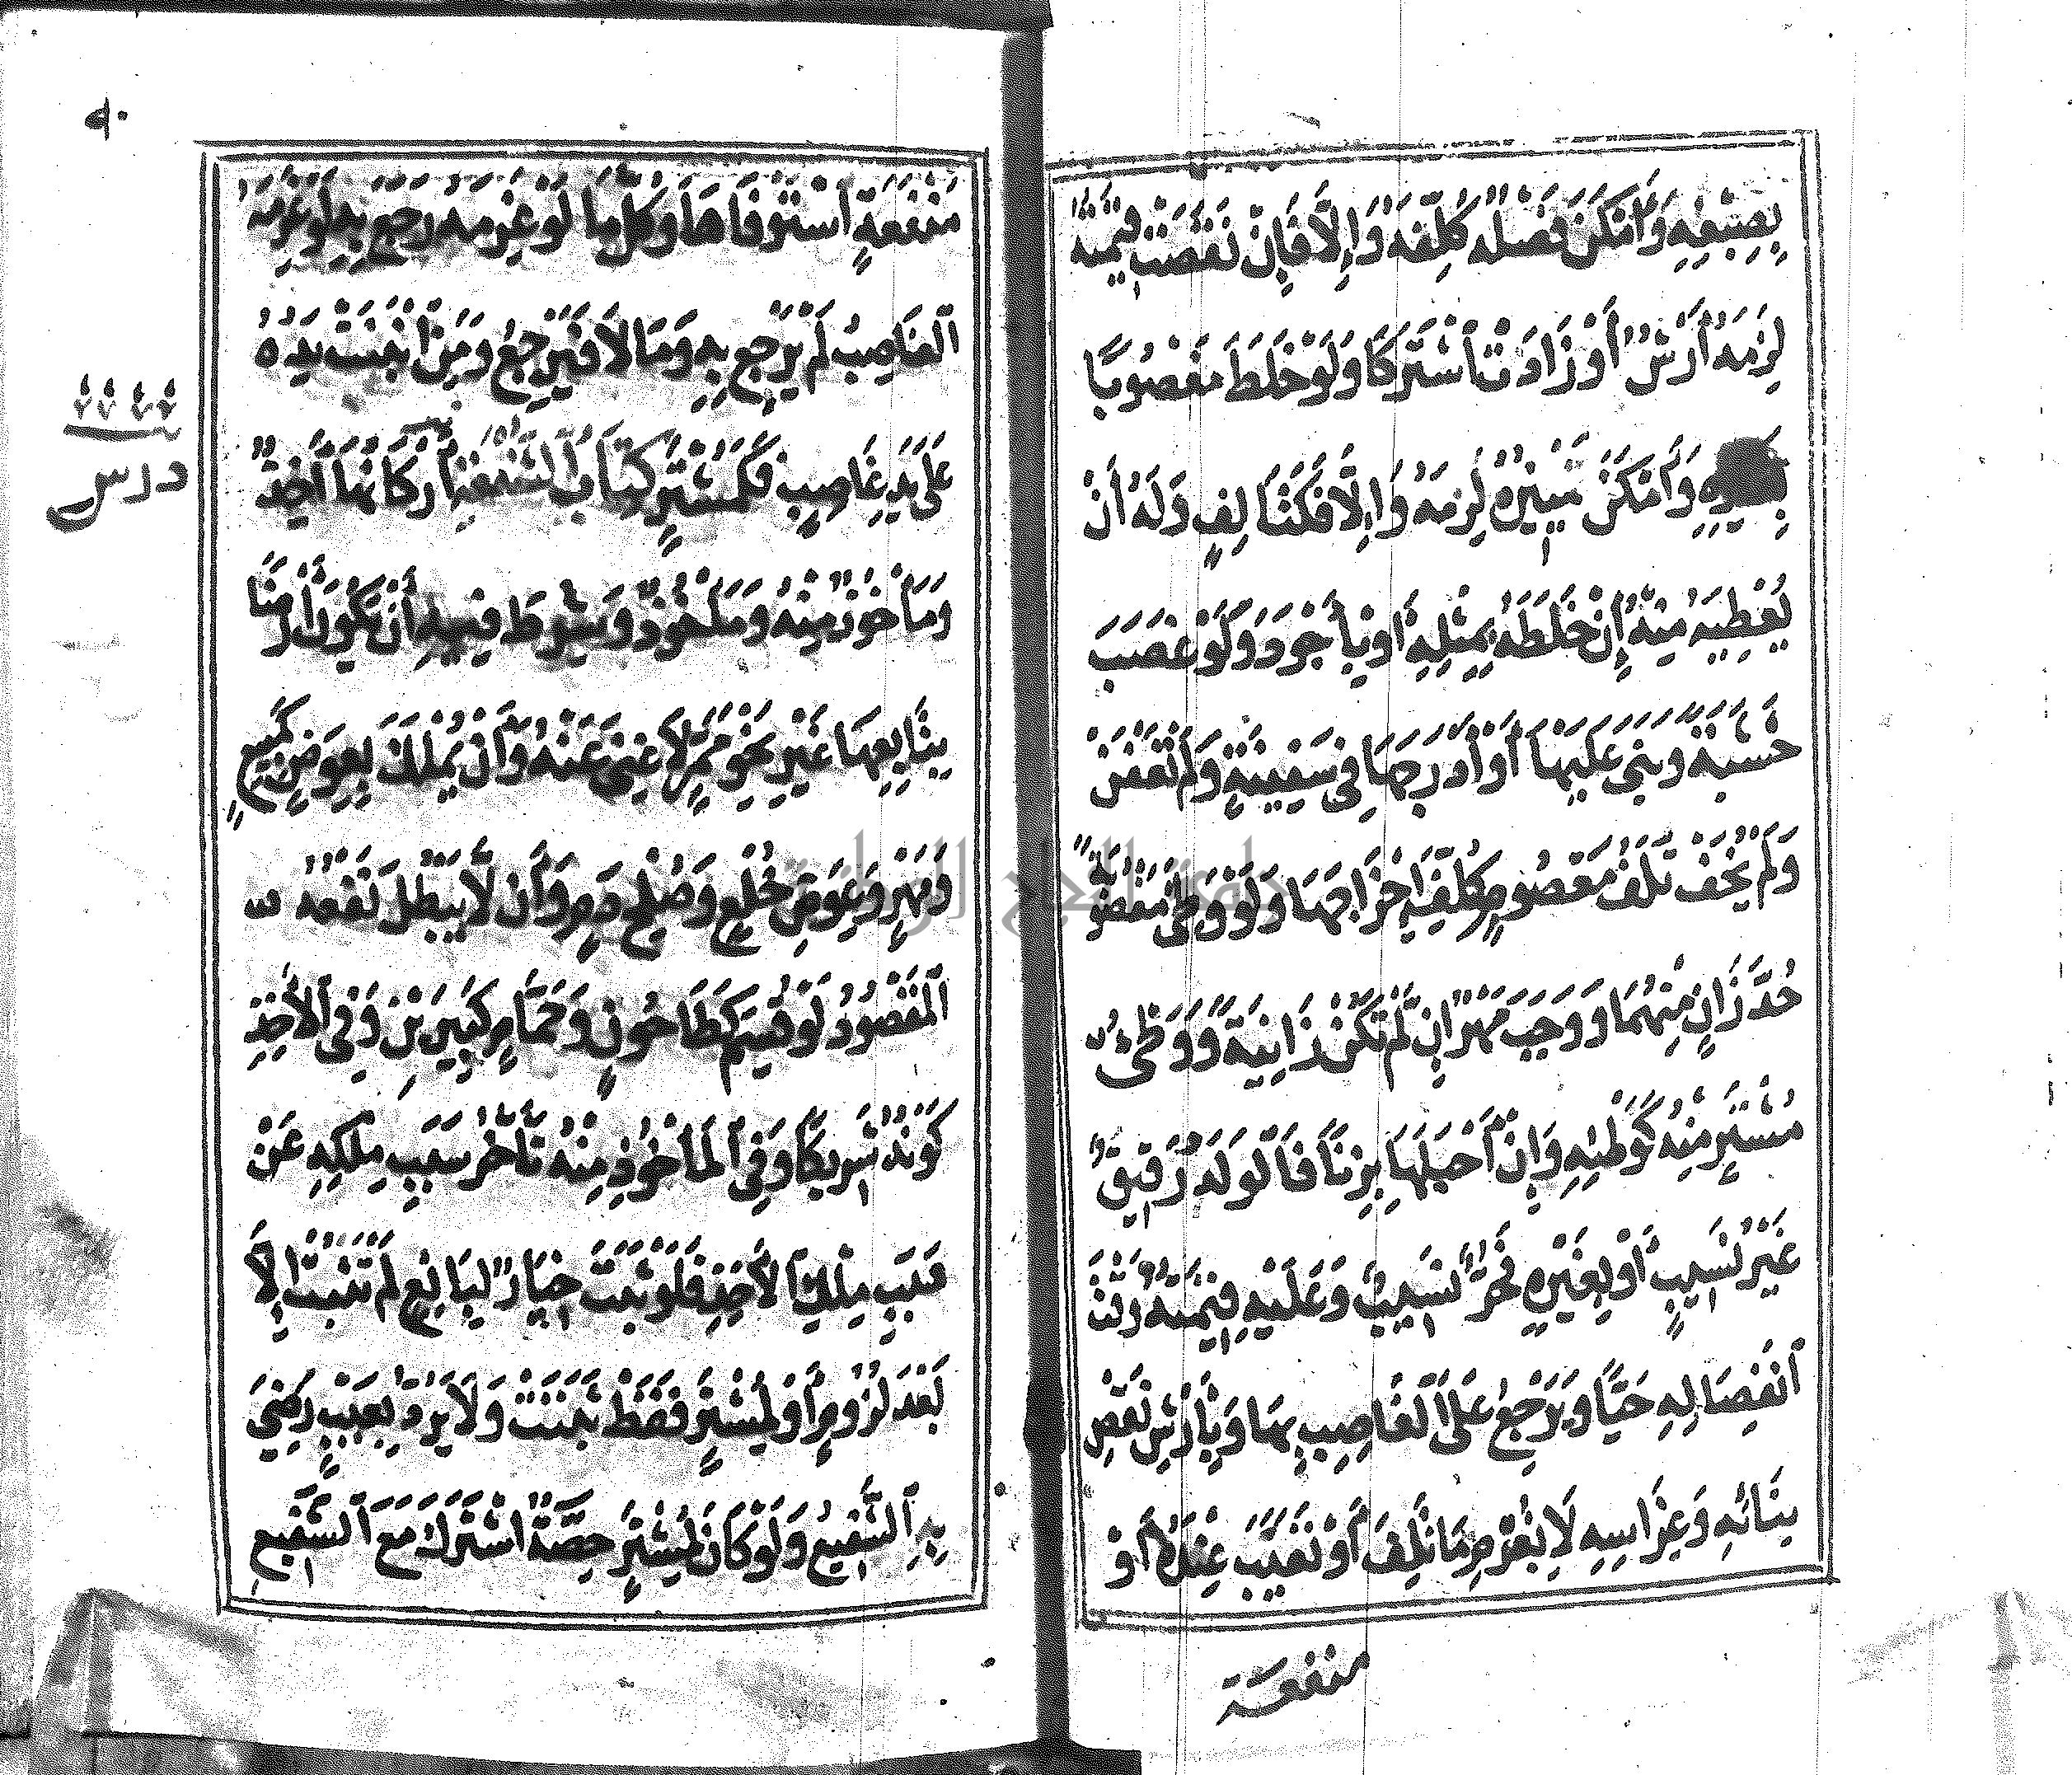 بِصِبْغِهِ وَأَمْكَنَ فَصْلُهُ كُلِّفَهُ وَإِلَّا فَإِنْ نَقَصَتْ قِيمَتُهُ
لَزِمَهُ أَرْشٌ أَوْ زَادَتْ اشْتَرَكَا وَلَوْ خَلَطَ مَغْصُوبًا
بِغَيْرِهِ وَأَمْكَنَ تَمْيِيزُهُ لَزِمَهُ وَإِلَّا فَكَتَالِفٍ وَلَهُ أَنْ
يُعْطِيَهُ مِنْهُ إِنْ خَلَطَهُ بِمِثْلِهِ أَوْ بِأَجْوَدَ وَلَوْ غَصَبَ
خَشَبَةً وَبَنَى عَلَيْهَا أَوْ أَدْرَجَهَا فِي سَفِينَةٍ وَلَمْ تَعْفَنْ
وَلَمْ يُخَفْ تَلَفُ مَعْصُومٍ كُلِّفَ إِخْرَاجَهَا وَلَوْ وَطِئَ مَغْصُوبَةً
حُدَّ زَانٍ مِنْهُمَا وَوَجَبَ مَهْرٌ إِنْ لَمْ تَكُنْ زَانِيَةً وَوَطْءُ
مُشْتَرٍ مِنْهُ كَوَطْئِهِ وَإِنْ أَحْبَلَهَا بِزِنًا فَالْوَلَدُ رَقِيقٌ
غَيْرُ نَسِيبٍ أَوْ بِغَيْرِهِ فَحُرٌّ نَسِيبٌ وَعَلَيْهِ قِيمَتُهُ وَقْتَ
انْفِصَالِهِ حَيًّا وَيَرْجِعُ عَلَى الْغَاصِبِ بِهَا وَبِأَرْشِ نَقْصِ
بِنَائِهِ وَغِرَاسِهِ لَا بِغُرْمِ مَا تَلِفَ أَوْ تَعَيَّبَ عِنْدَهُ أَوْ
منفعة
٩٠
مَنْفَعَةٍ اسْتَوْفَاهَا وَكُلُّ مَا لَوْ غَرِمَهُ رَجَعَ بِهِ لَوْ غَرِمَهُ
الْغَاصِبُ لَمْ يَرْجِعْ بِهِ وَمَا لَا فَيَرْجِعُ وَمَنِ انْبَنَتْ يَدُهُ
عَلَى يَدِ غَاصِبٍ فَكَمُشْتَرٍ كِتَابُ الشُّفْعَةِ أَرْكَانُهَا آخِذٌ
وَمَأْخُوذٌ مِنْهُ وَمَأْخُوذٌ وَشُرِطَ فِيهِ أَنْ يَكُونَ أَرْضًا
بِتَابِعِهَا غَيْرِ نَحْوِ مَمَرٍّ لَا غِنَى عَنْهُ وَأَنْ يُمْلَكَ بِعِوَضٍ كَمَبِيعٍ
وَمَهْرٍ وَعِوَضِ خُلْعٍ وَصُلْحِ دَمٍ وَأَنْ لَا يَبْطُلَ نَفْعُهُ
الْمَقْصُودُ لَوْ قُسِمَ كَطَاحُونٍ وَحَمَّامٍ كَبِيرَيْنِ وَفِي الْآخِذِ
كَوْنُهُ شَرِيكًا وَفِي الْمَأْخُوذِ مِنْهُ تَأَخُّرُ سَبَبِ مِلْكِهِ عَنْ
سَبَبِ مِلْكِ الْآخِذِ فَلَوْ ثَبَتَ خِيَارٌ لِبَائِعٍ لَمْ تَثْبُتْ إِلَّا
بَعْدَ لُزُومٍ أَوْ لِمُشْتَرٍ فَقَطْ ثَبَتَتْ وَلَا يُرَدُّ بِعَيْبٍ رَضِيَ
بِهِ الشَّفِيعُ وَلَوْ كَانَ لِمُشْتَرٍ حِصَّةٌ اشْتَرَكَ مَعَ الشَّفِيعِ
درس